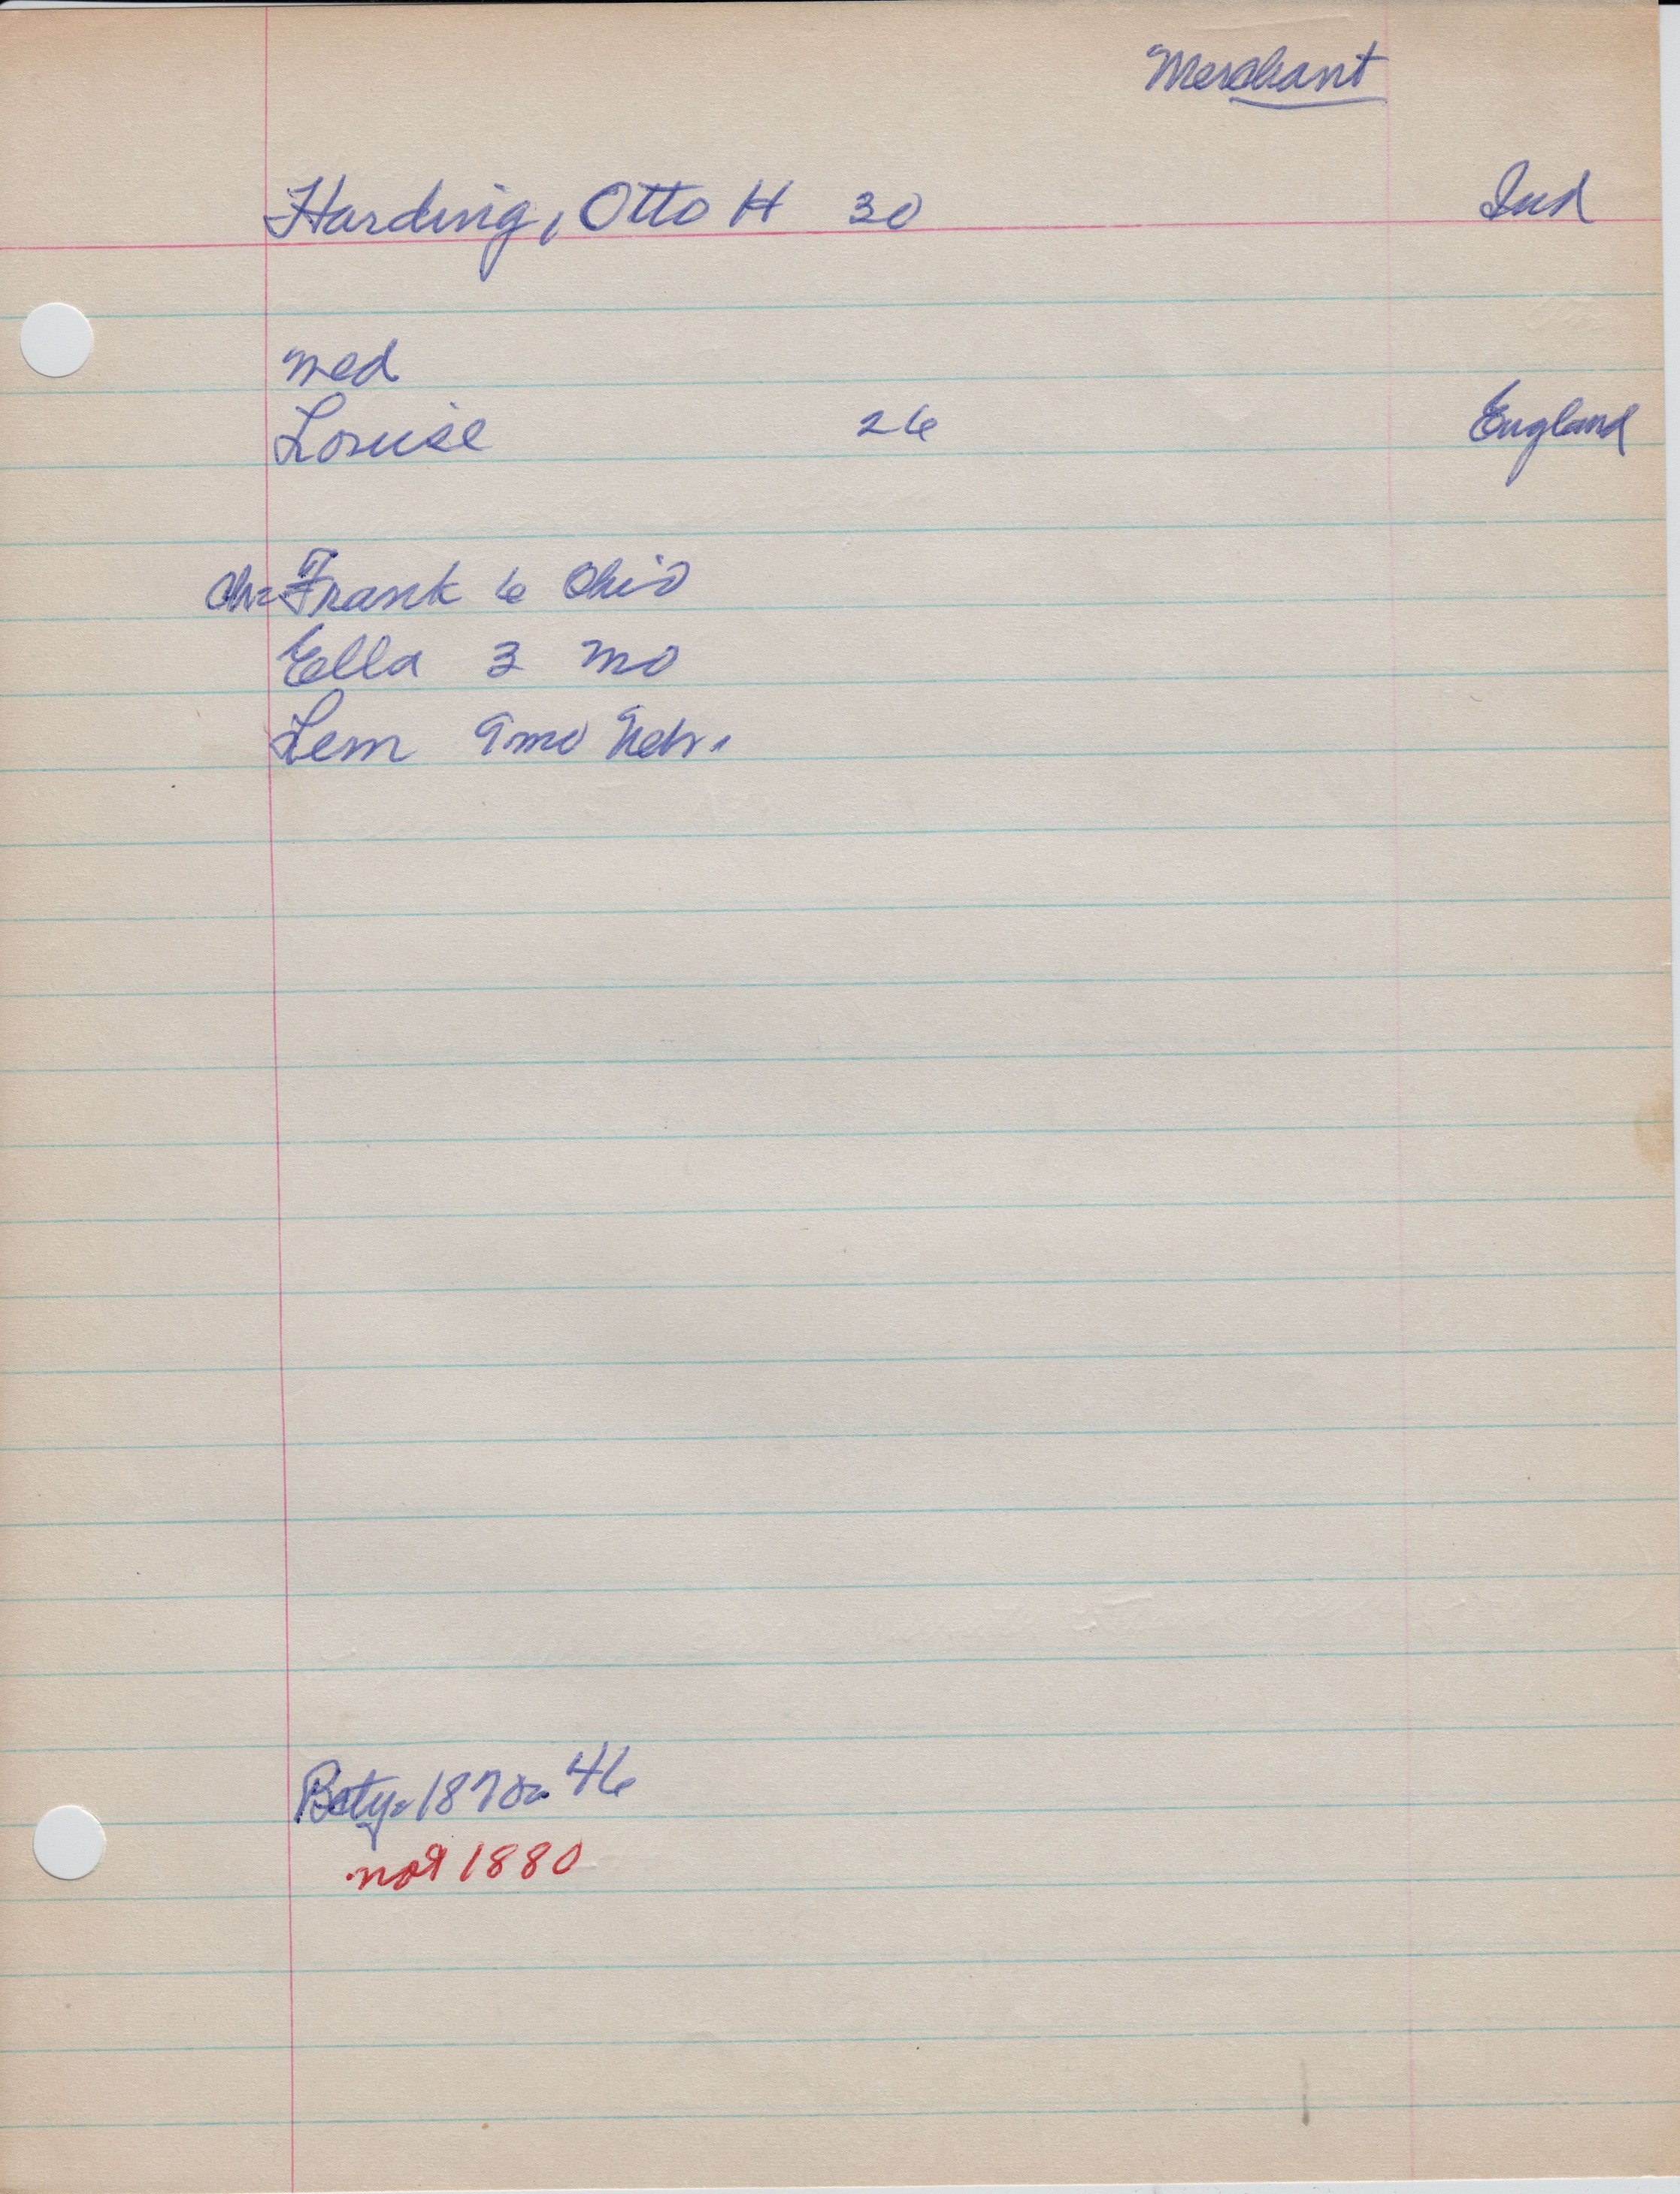 Merchant
Harding, Otto H 30 Ind
med
Louise 26 England
ch= Frank 6 Ohio
Ella 3 Mo
Lem 9mo Nebr.
1870= 46
not 1880